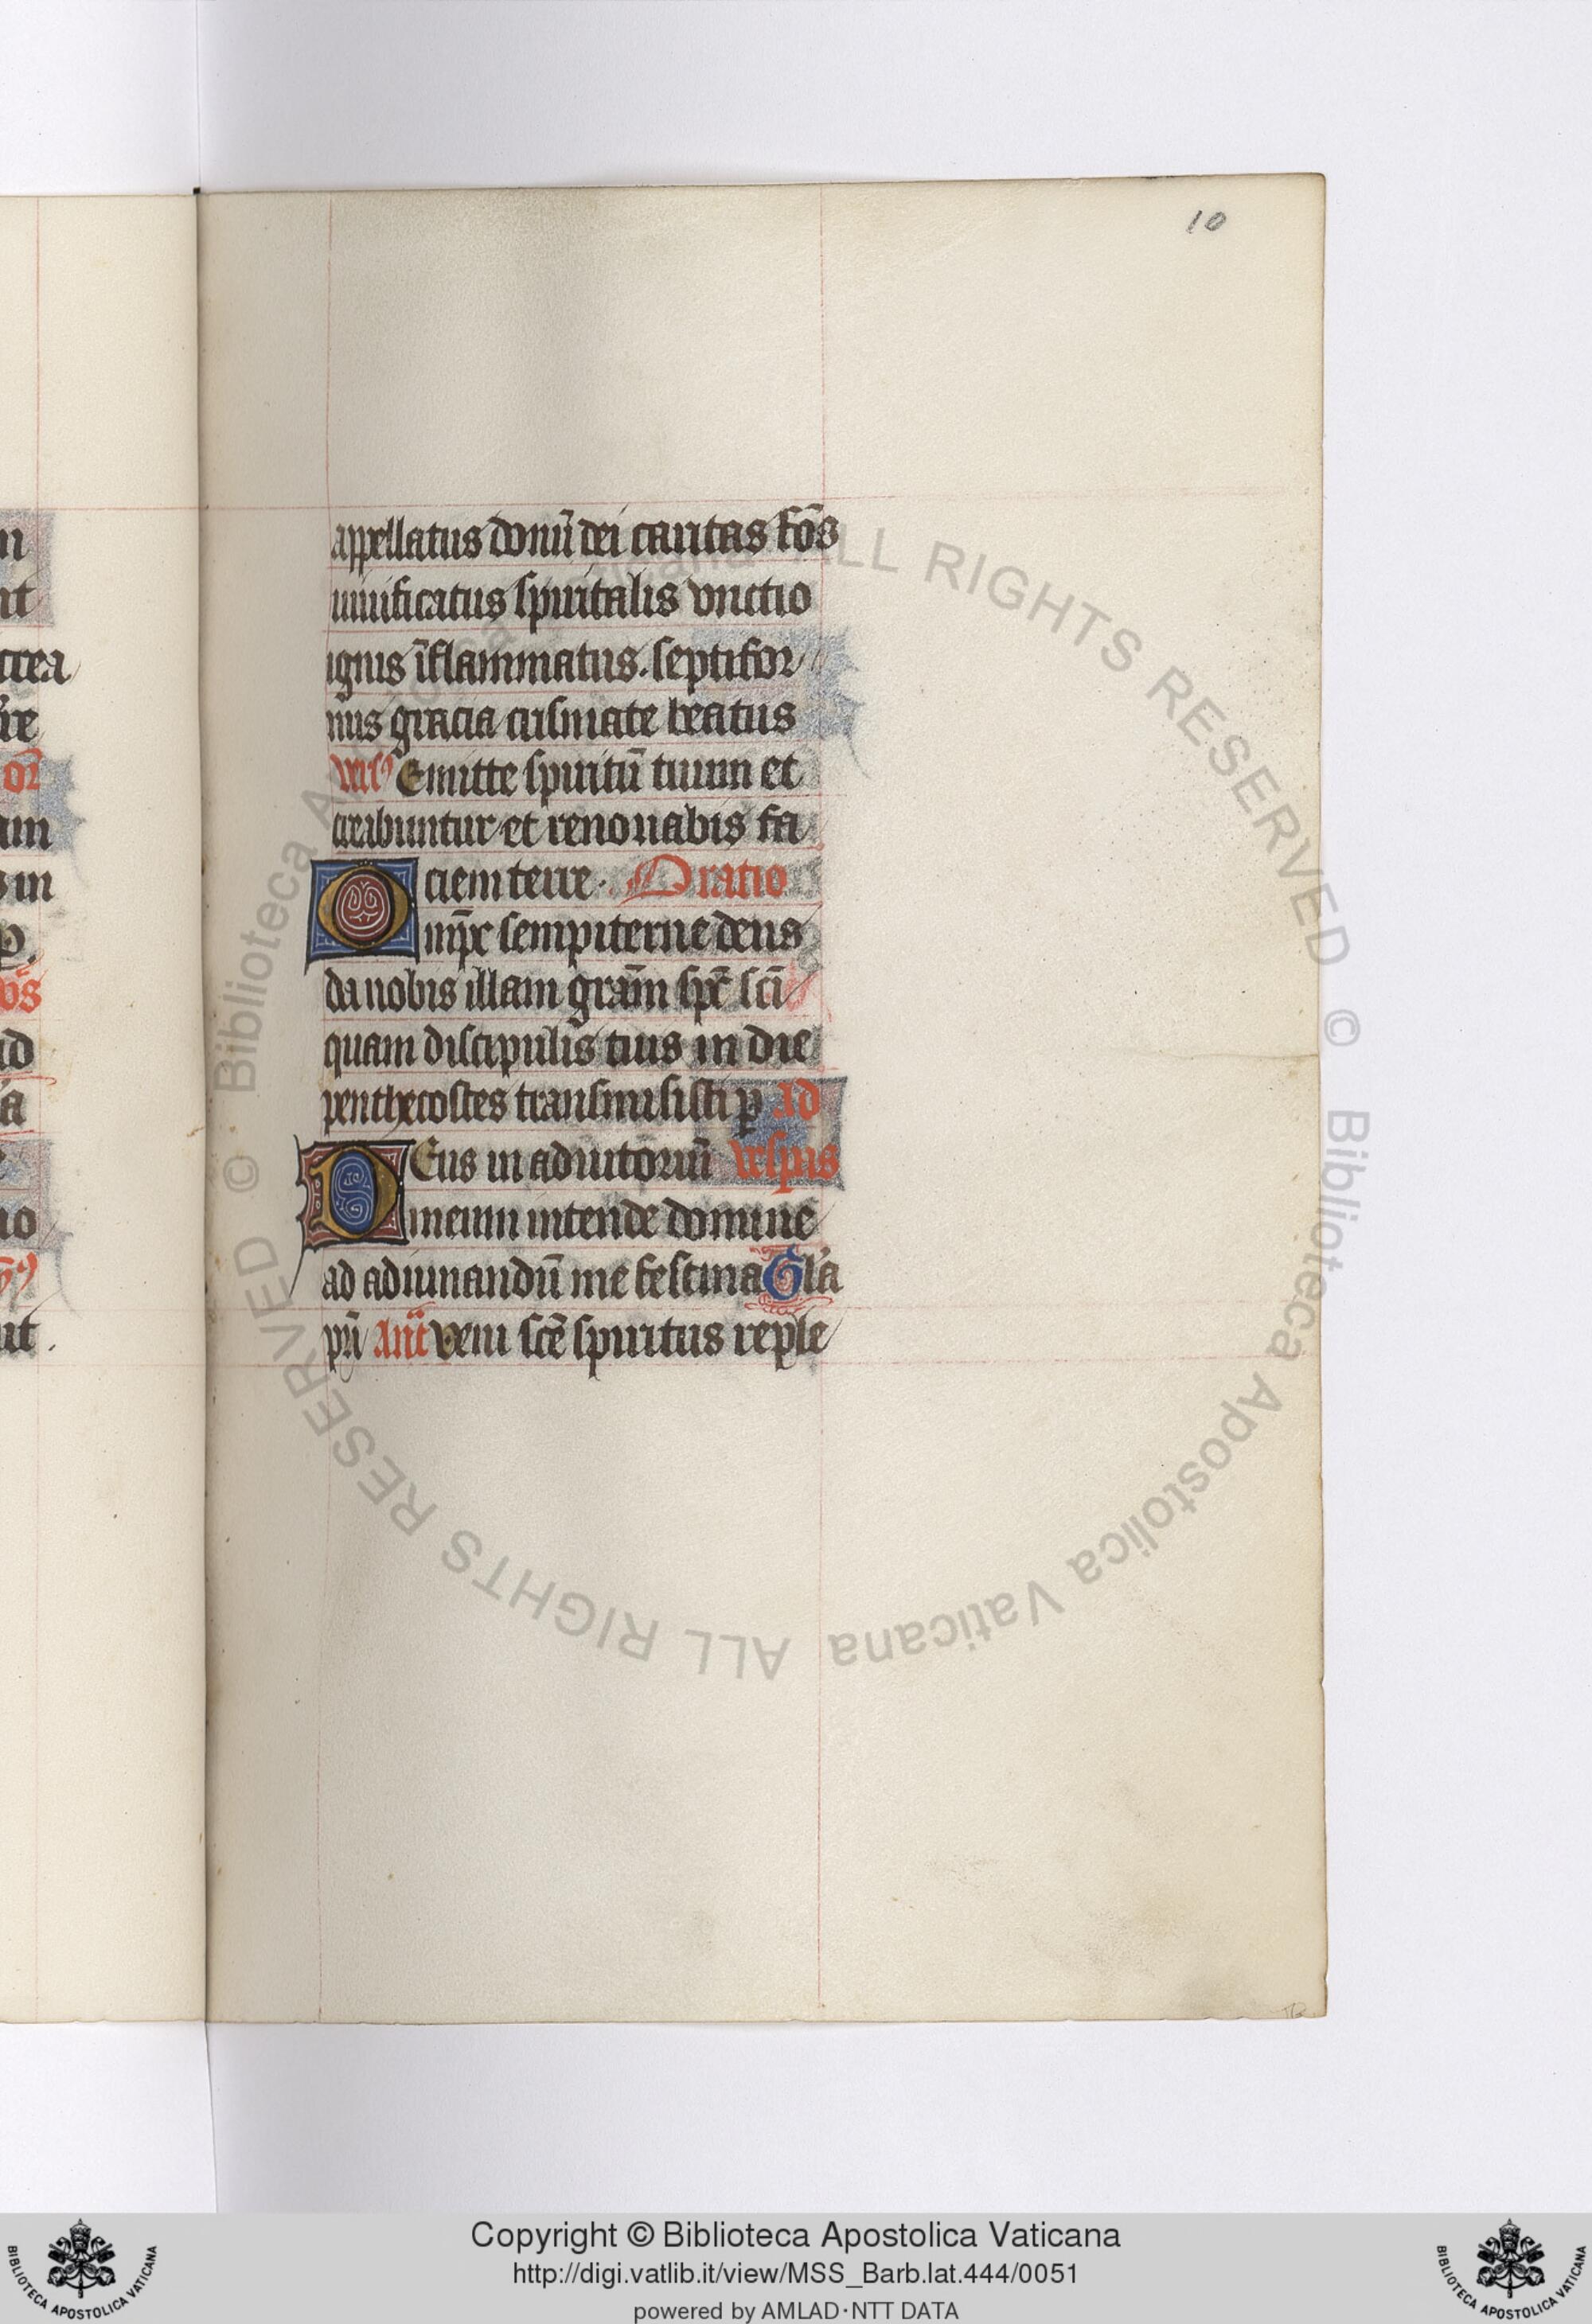 10
appellatus donū dei caritas fōs
uiuificatus spiritalis vnctio
ignis īflammatus. septifor
mis gracia crismate beatus
vers⁹ Emitte spiritū tuum et
creabuntur et renouabis fa
ciem terre. Oratio
Omp̄c sempiterne deus
da nobis illam grām spc̄ scī
quam discipulis tuis in die
penthecostes transmisisti ꝑ ad
DEus in adiutoriū vespis
meum intende domine
ad adiuuandū me festina Gl'a
pr̄i Anī veni scē spiritus reple
Copyright © Biblioteca Apostolica Vaticana
http://digi.vatlib.it/view/MSS_Barb.lat.444/0051
powered by AMLAD·NTT DATA
BIBLIOTECA APOSTOLICA VATICANA
BIBLIOTECA APOSTOLICA VATICANA
© Biblioteca Apostolica Vaticana ALL RIGHTS RESERVED © Biblioteca Apostolica Vaticana ALL RIGHTS RESERVED